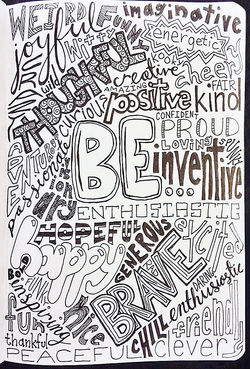 WEIRD
FUNNY
imaginative
joyful
witty
energetic
THOUGHTFUL
cheery
creative
FAIR
AMAZING
positive
kind
CONFIDENT
PROUD
LOVING
BE...
inventive
passionate
ENTHUSIASTIC
HOPEFUL
GENEROUS
excited
happy
BRAVE
DARING
enthusiastic
inspiring
fun
nice
CHILL
friendly
thankful
PEACEFUL
clever